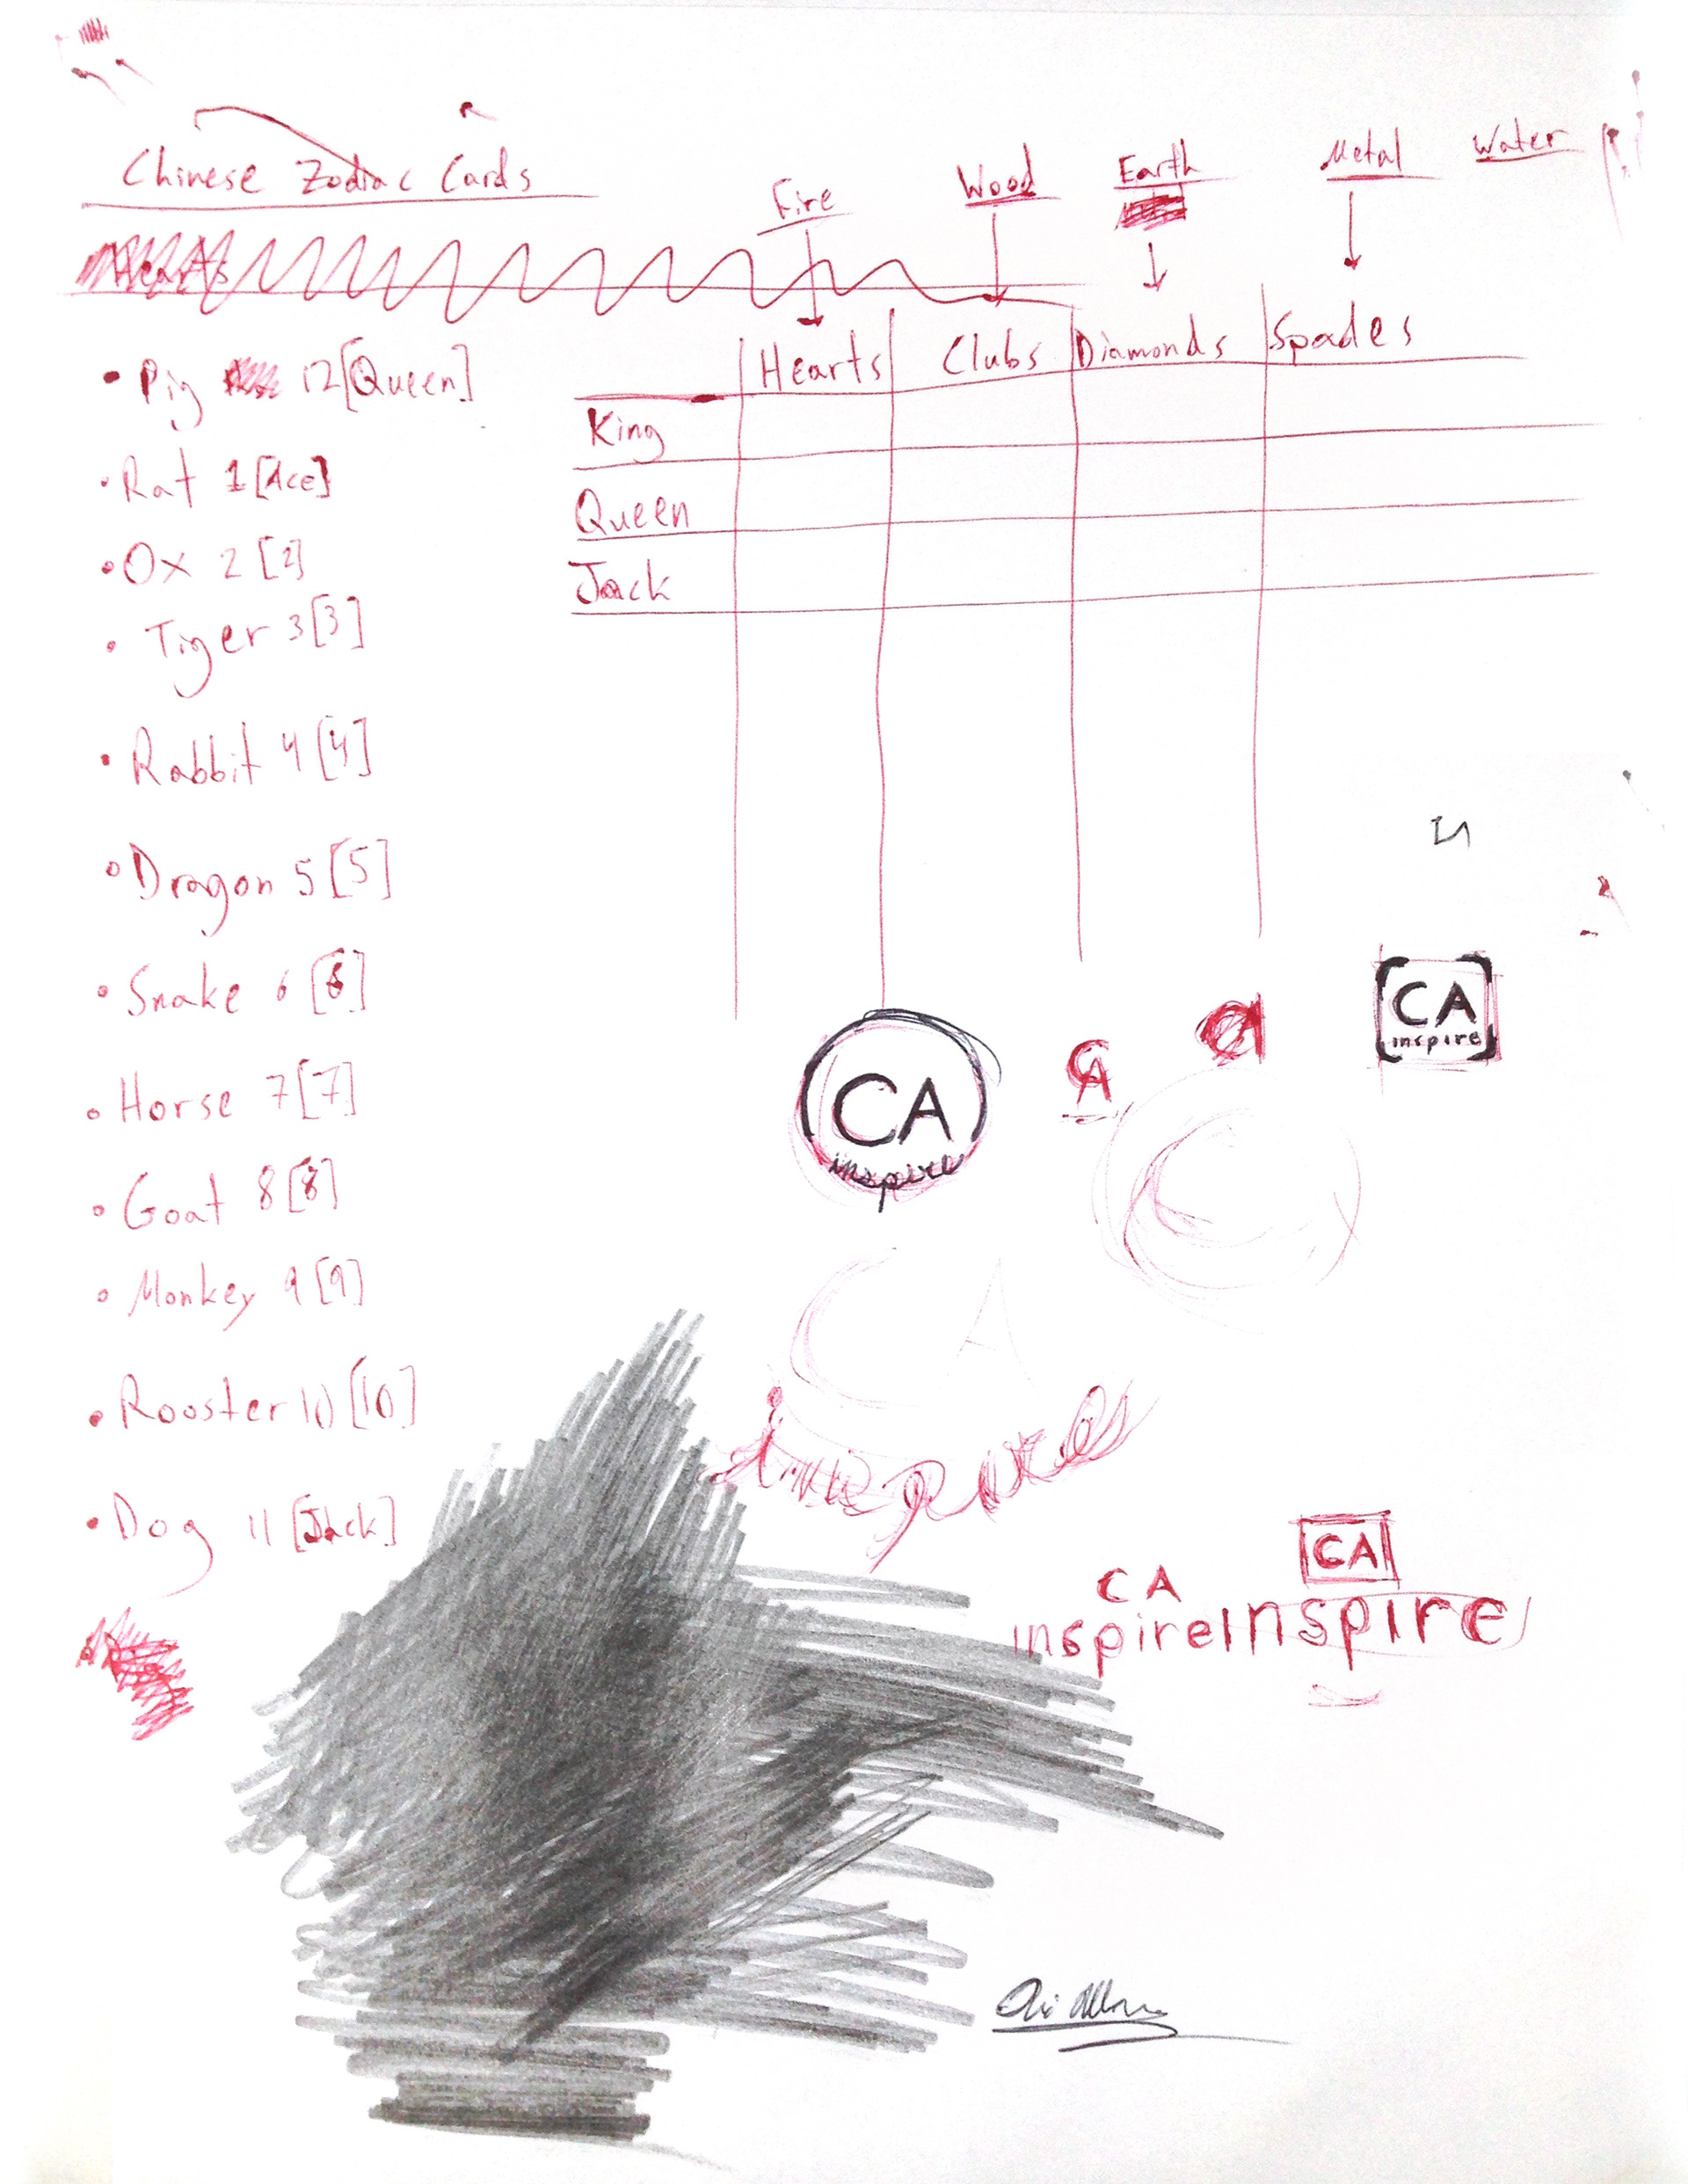 Chinese Zodiac Cards
Fire Wood Earth Metal Water
Hearts
Hearts Clubs Diamonds Spades
King
Queen
Jack
• Pig 12 [Queen]
• Rat 1 [Ace]
• Ox 2 [2]
• Tiger 3 [3]
• Rabbit 4 [4]
• Dragon 5 [5]
• Snake 6 [6]
• Horse 7 [7]
• Goat 8 [8]
• Monkey 9 [9]
• Rooster 10 [10]
• Dog 11 [Jack]
CA
inspire
CA
CA
CA
inspire
CA
CA
inspire
CA
Inspire